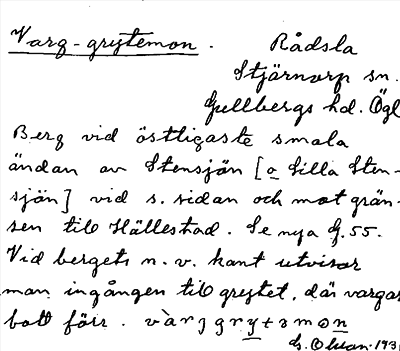 Varg-grytemon. Rådsla
Stjärnorp sn.
Gullbergs hd. Ögl
Berg vid östligaste smala
ändan av Stensjön [o Lilla Sten-
sjön] vid s. sidan och mot grän-
sen till Hällestad. Se nya G.55.
Vid bergets n.v. kant utvisar
man ingången till grytet, där vargar
bott förr. vàrggrytəmon
G. Ohlson.